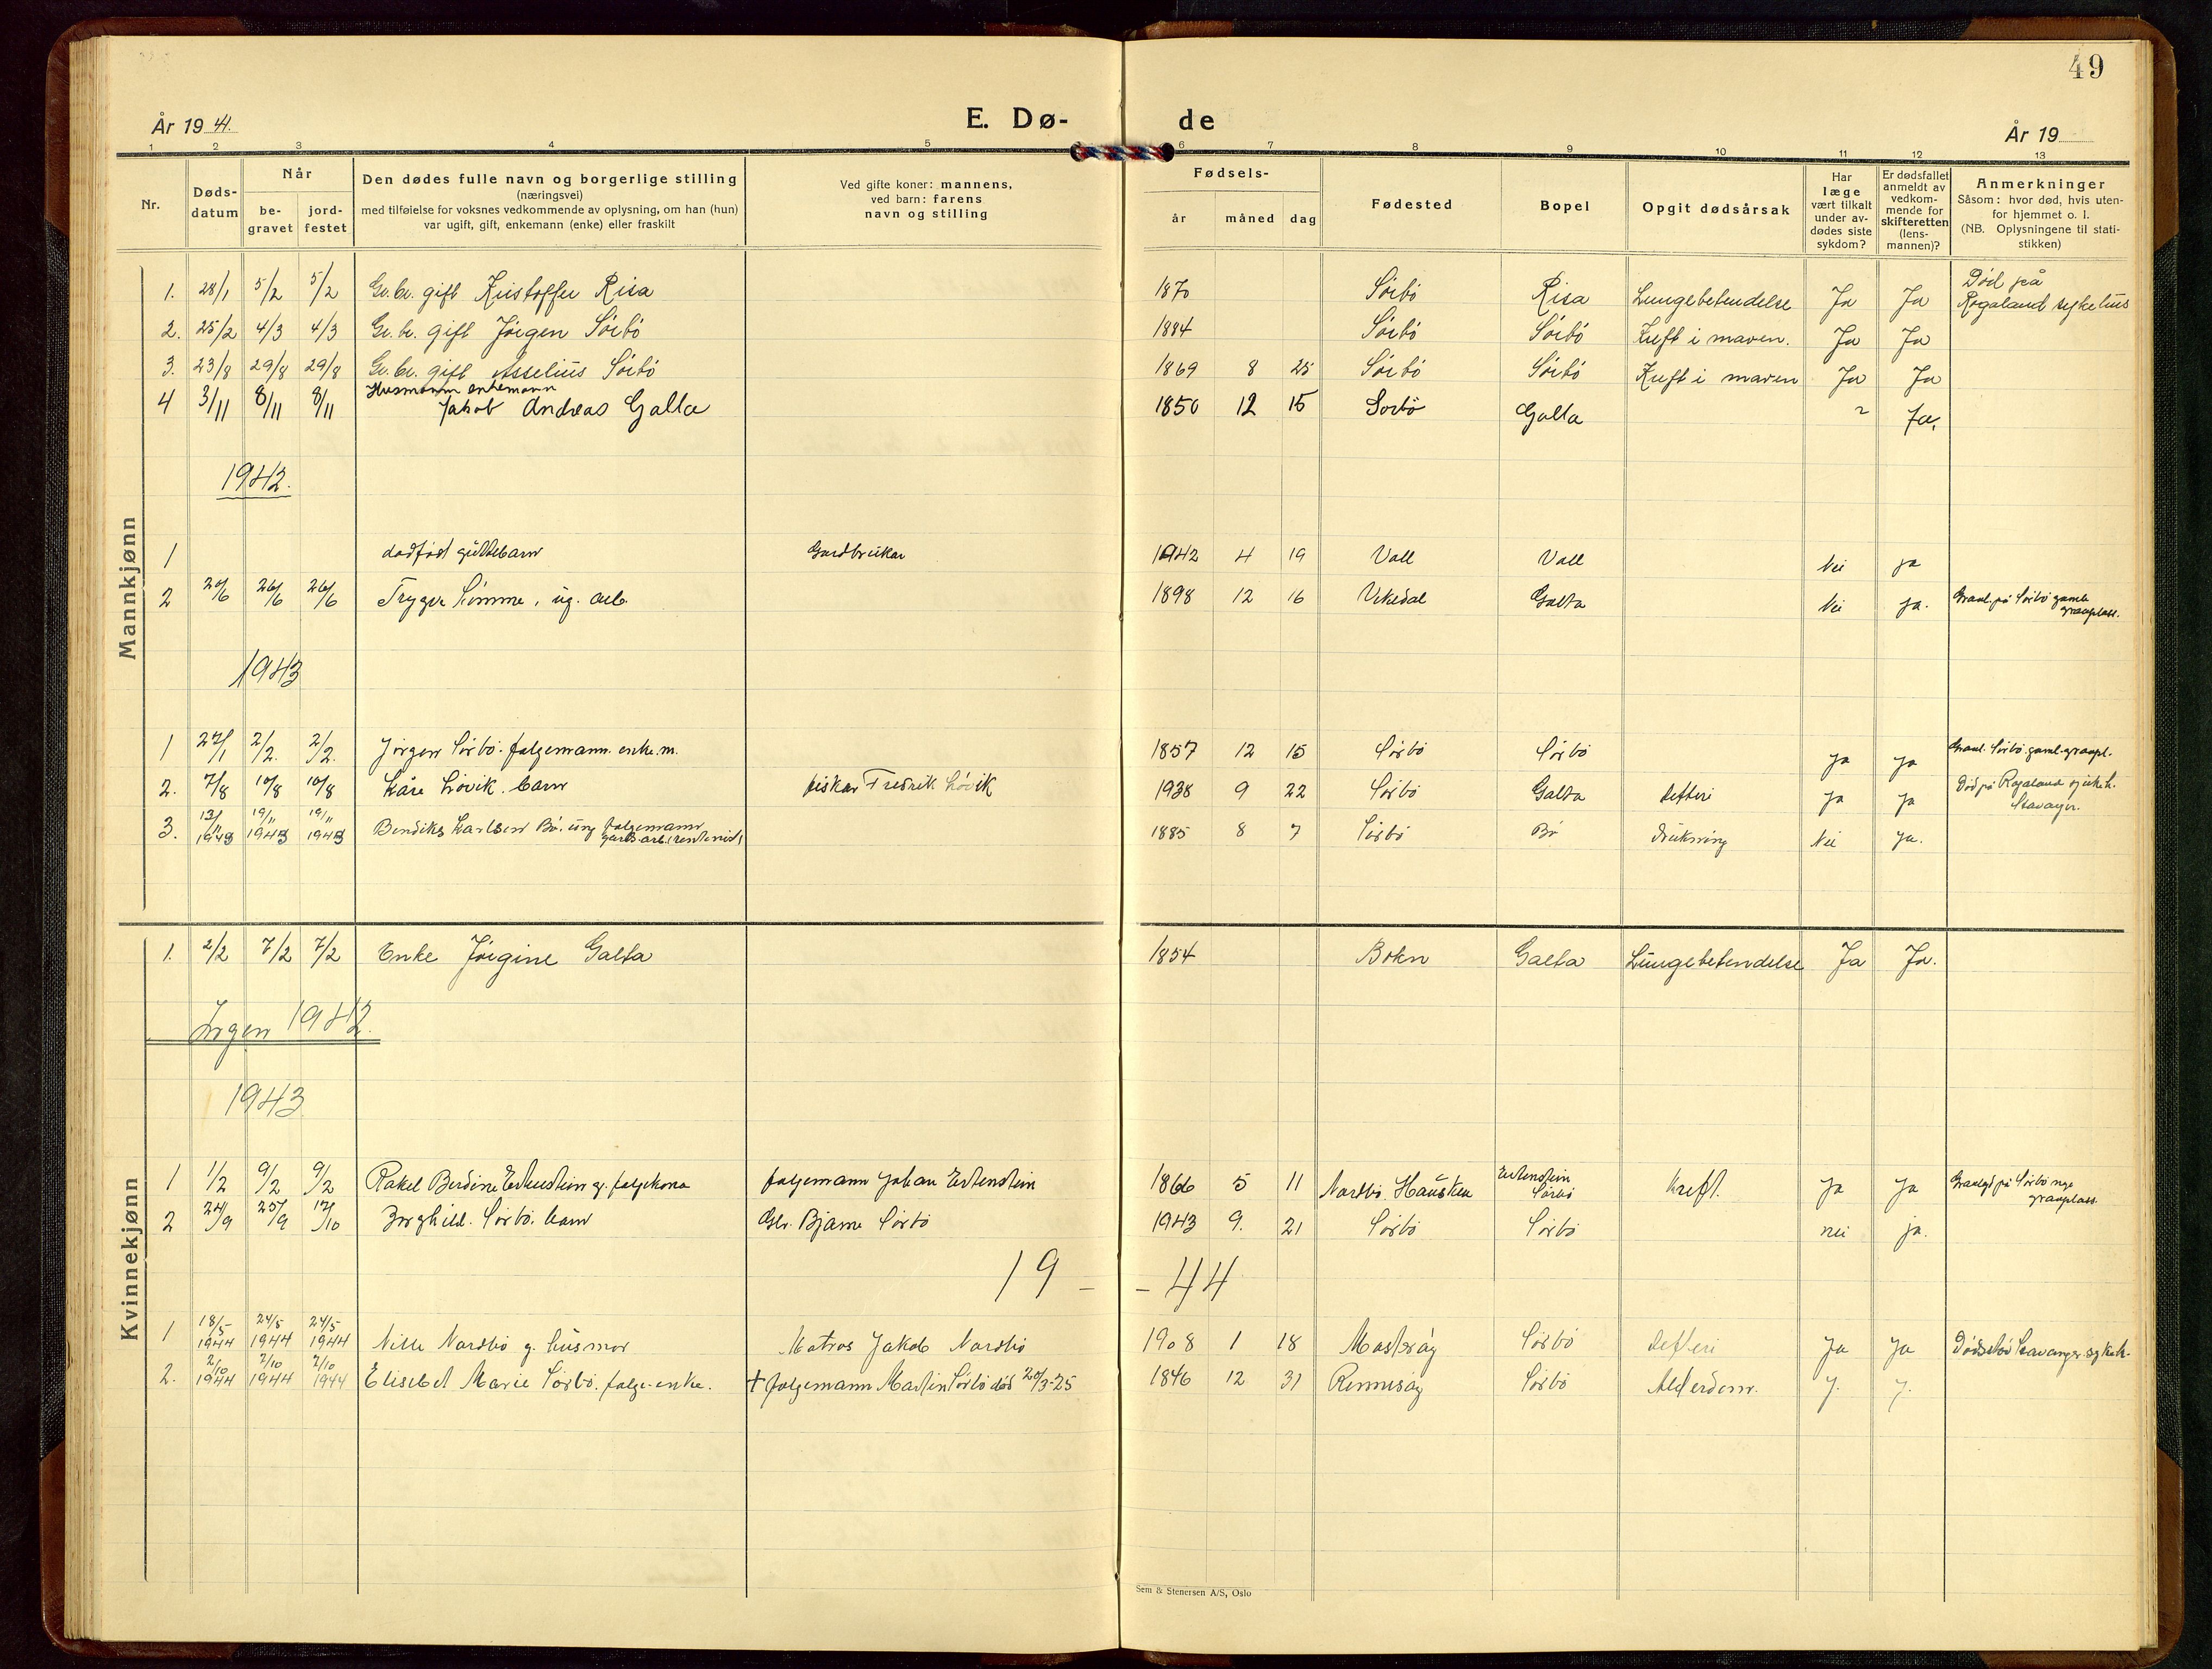 49
År 1941.
E. Dø-
de
År 19
1 2 3 4 5 6 7 8 9 10 11 12 13
Nr.
Døds-
datum
Når
be-
gravet
jord-
festet
Den dødes fulle navn og borgerlige stilling
(næringsvei)
med tilføielse for voksnes vedkommende av oplysning, om han (hun)
var ugift, gift, enkemann (enke) eller fraskilt
Ved gifte koner: mannens,
ved barn: farens
navn og stilling
Fødsels-
år måned dag
Fødested
Bopel
Opgit dødsårsak
Har
læge
vært tilkalt
under av-
dødes siste
sykdom?
Er dødsfallet
anmeldt av
vedkom-
mende for
skifteretten
(lens-
mannen)?
Anmerkninger
Såsom: hvor død, hvis uten-
for hjemmet o. l.
(NB. Oplysningene til stati-
stikken)
Mannkjønn
1. 28/1 5/2 5/2 Gr.br. gift Kristoffer Risa 1870 Sörbö Risa Lungebetendelse Ja Ja Död på Rogaland sykehus
2. 25/2 4/3 4/3 Gr. br. gift Jörgen Sörbö 1884 Sörbö Sörbö Kreft i maven. Ja Ja
3. 23/8 29/8 29/8 Gr. br. gift Asselius Sörbö 1869 8 25 Sörbö Sörbö Kreft i maven Ja Ja
4 3/11 8/11 8/11 Husmann enkemann Jakob Andreas Galta 1850 12 15 Sörbö Galta ? Ja.
1942.
1 dødfødt guttebarn Gardbrukar 1942 4 19 Vall Vall Nei ja
2 20/6 26/6 26/6 Trygve Sömme, ug. arb. 1898 12 16 Vikedal Galta Nei ja. Gravl. på Sörbö gamle gravplass.
1943
1 27/1 2/2. 2/2. Jörgen Sörbö. folgemann. enke.m. 1857 12 15 Sörbö Sörbö ja ja Gravl. Sörbö. gaml. gravpl.
2. 7/8 10/8 10/8 Kåre Lövik. barn fiskar Fredrik Lövik 1938 9 22 Sörbö Galta difteri ja ja Död på Rogaland sjukeh. Stavanger.
3. 13/11 1943 19/11 1943 19/11 1943 Bendiks Karlsen Bö. ung folgemann gards-arb. 1885 8 7 Sörbö Bö drukning Nei ja.
Kvinnekjønn
1. 2/2 7/2 7/2 Enke Jörgine Galta 1854 Bokn Galta Lungebetendelse Ja Ja.
Ingen 1942.
1943
1 1/2 9/2 9/2 Rakel Berdine Eidenstein g. folgekona folgemann Johan Eidenstein 1866 5 11 Nordbö. Hausken Eidenstein Sörbö kreft. ja ja Gravlgt på Sörbö nye gravplass.
2 24/9 25/9 17/10 Borghild. Sörbö. barn Gbr. Bjarne Sörbö 1943 9. 21 Sörbö Sörbö nei ja.
19 - - 44
1 18/5 1944 24/5 1944 24/5 1944 Nille Nordbö g. husmor Matros Jakob Nordbö 1908 1 18 Mosteröy Sörbö difteri ja ja Dödsted Stavanger sykeh.
2. 2/10 1944 7/10 1944 7/10 1944 Elisebet Marie Sörbö. folge-enke. + folgemann Martin Sörbö död 20/3-25 1846 12 31 Rennesöy Sörbö Alderdom. j. j.
Sem & Stenersen A/S, Oslo